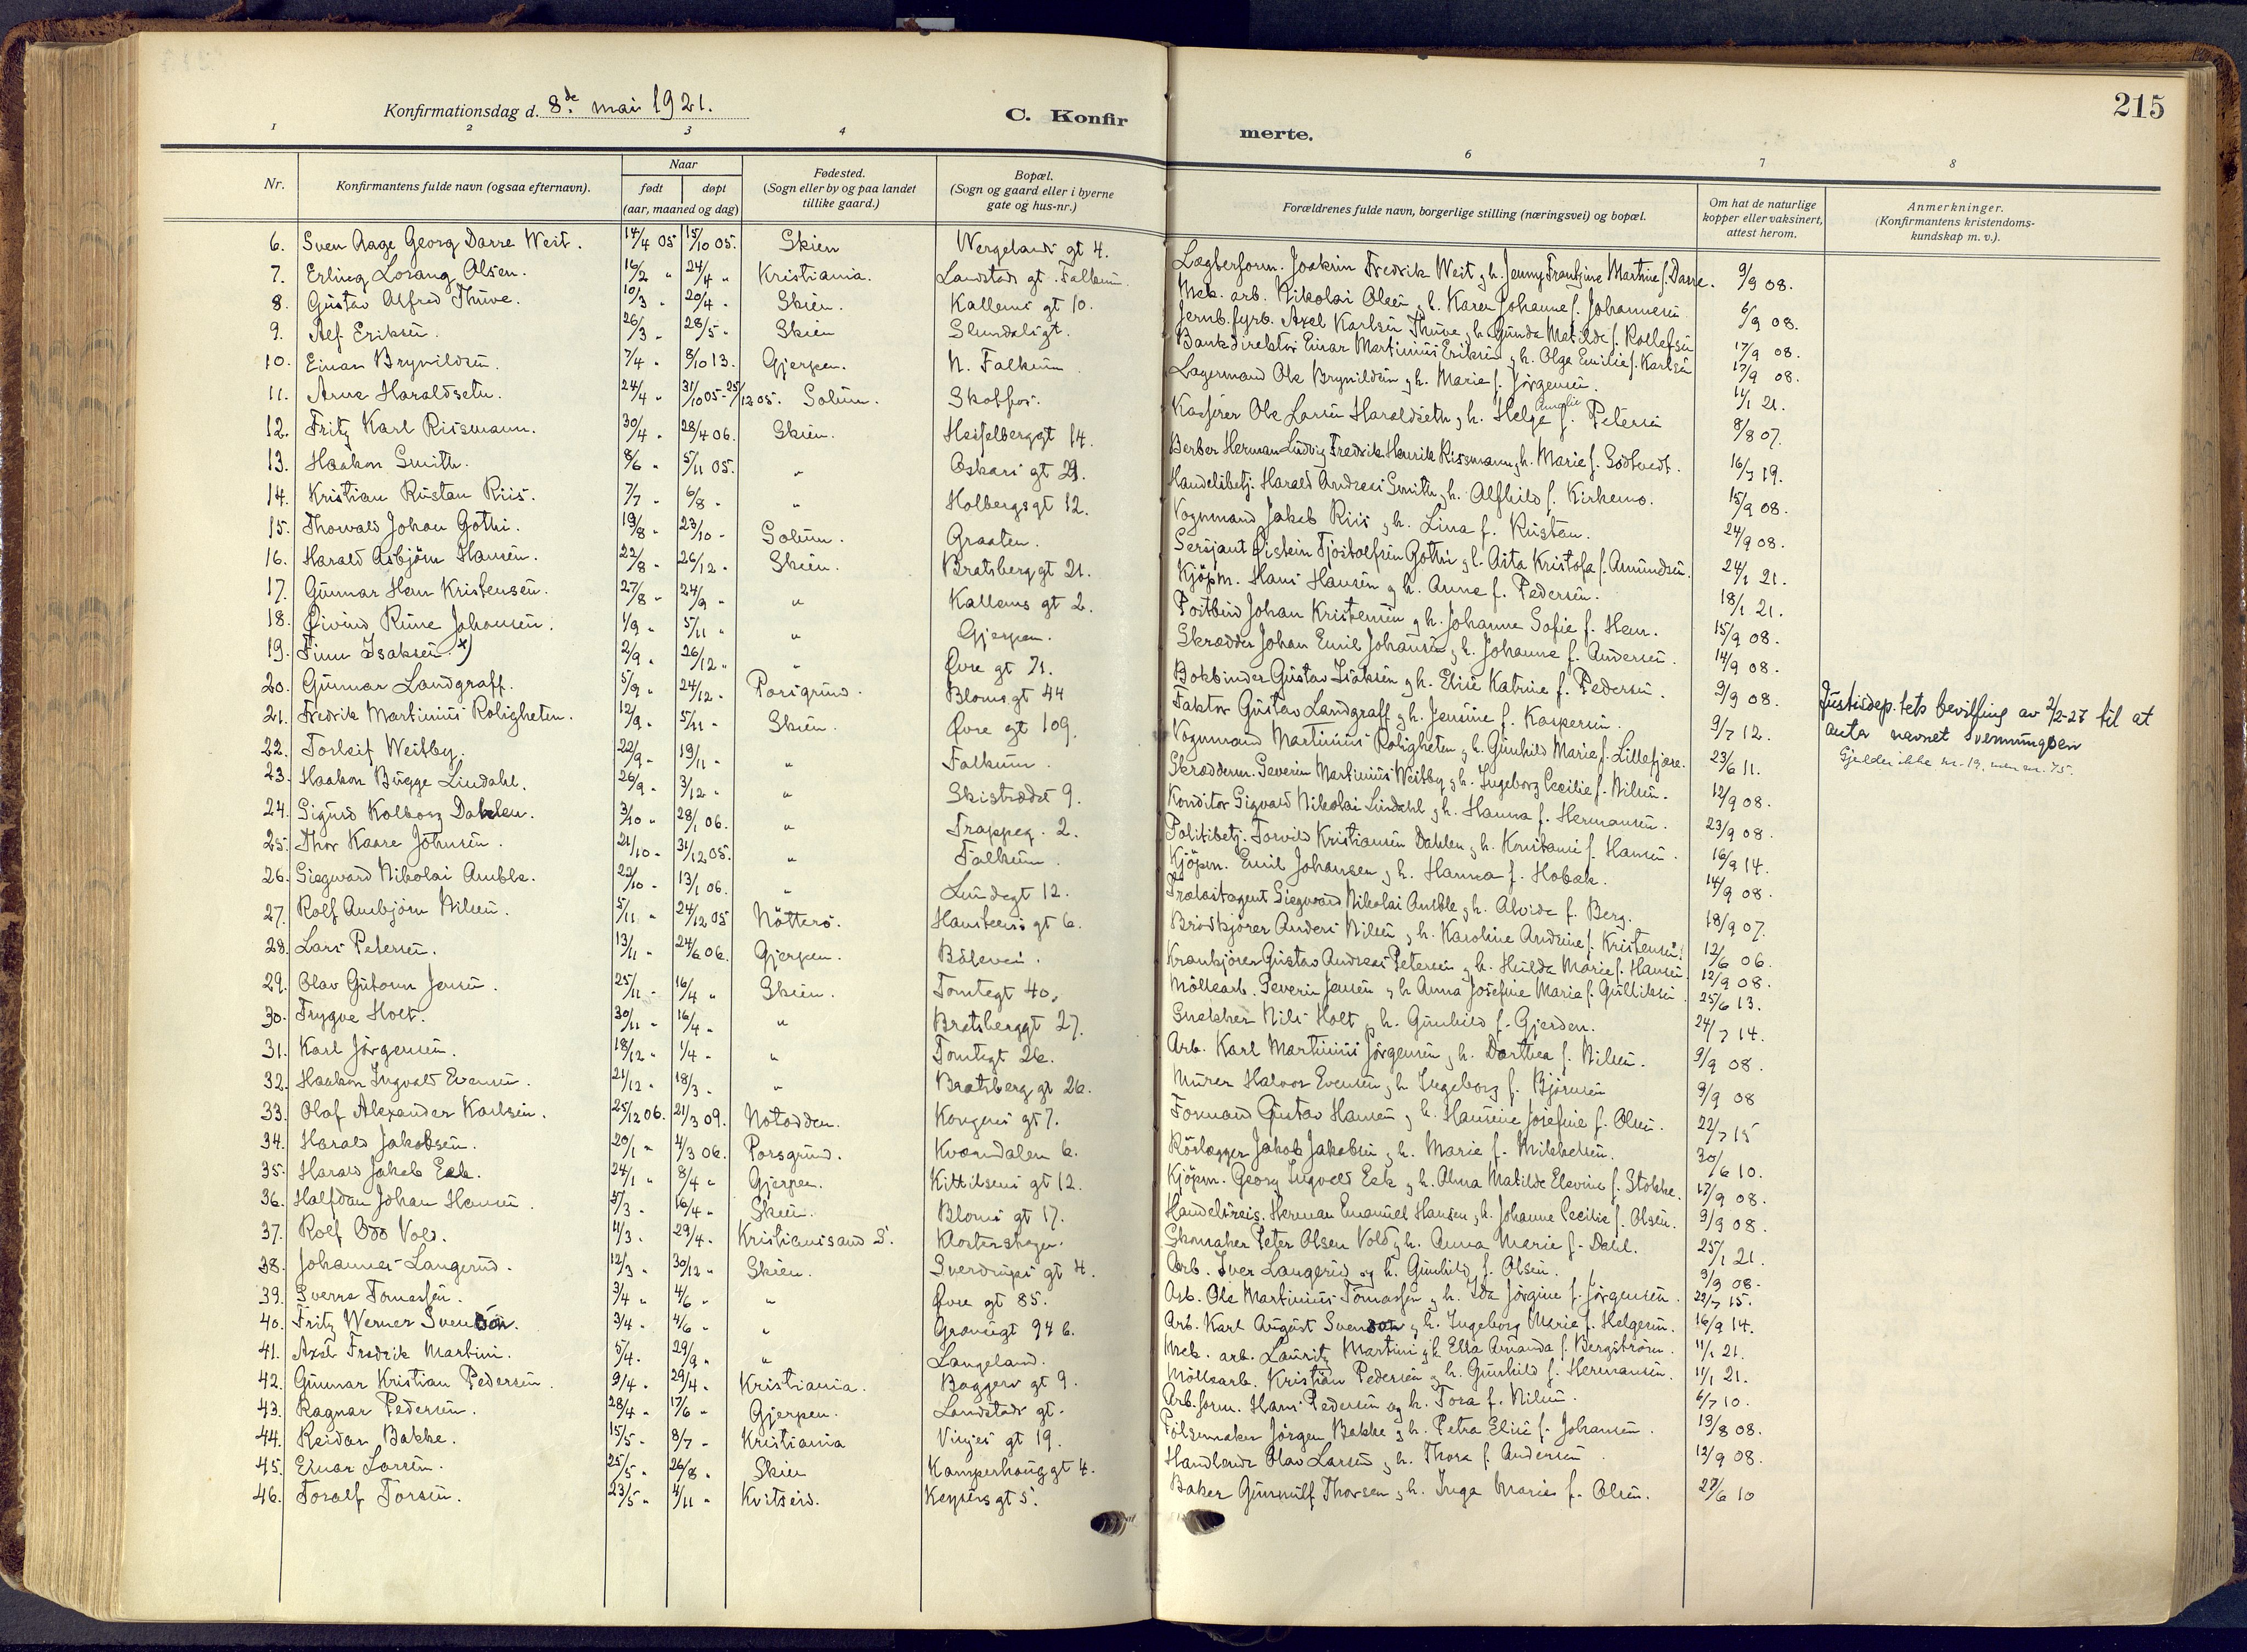 215
Konfirmationsdag d. 8de mai 1921.
C. Konfirmerte.
1 2 3 4 6 7 8
Nr. | Konfirmantens fulde navn (ogsaa efternavn). | Naar født døpt (aar, maaned og dag) | Fødested. (Sogn eller by og paa landet tillike gaard.) | Bopæl. (Sogn og gaard eller i byerne gate og hus-nr.) | Forældrenes fulde navn, borgerlige stilling (næringsvei) og bopæl. | Om hat de naturlige kopper eller vaksinert, attest herom. | Anmerkninger. (Konfirmantens kristendomskundskap m. v.).
6. Sven Aage Georg Darre Weit. 14/4 05 15/10 05. Skien Wergelands gt 4. Joakim Fredrik Weit g h. Jenny Frantzine Martine f. Darre. 9/9 08.
7. Erling Lorang Olsen. 16/2 " 24/4 " Kristiania. Landstads gt. Falkum. Mek. arb. Nikolai Olsen g h. Karen Johanne f. Johannesen 6/9 08.
8. Gustav Alfred Thuve. 10/3 " 20/4 " Skien. Kallems gt 10. Jernb. fyrb. Axel Karlsen Thuve g h. Gunda Matilde f. Rollefsen 17/9 08.
9. Alf Eriksen. 26/3 " 28/5 " Skien Slemdalsgt. Bankdirektør Einar Martinius Eriksen g h. Olga Emilie f. Karlsen 17/9 08.
10. Einar Brynildsen. 7/4 " 8/10 13. Gjerpen. N. Falkum Lagermand Ole Brynildsen g h. Marie f. Jörgensen. 11/1 21.
11. Arne Haraldseth. 24/4 " 31/10 05 - 25/12 05. Solum. Skotfos. Kasserer Ole Larsen Haraldseth g h. Helga Amalie f. Petersen 8/8 07.
12. Fritz Karl Rissmann. 30/4 " 28/4 06. Skien. Hesselberggt 14. Barber Herman Ludvig Fredrik Henrik Rissmann g h. Marie f. Godtvedt. 16/7 19.
13. Haakon Smith. 8/6 " 5/11 05. " Oskars gt 29. Handelsbetj. Harald Andreas Smith g h. Alfhild f. Kirkemo. 15/9 08.
14. Kristian Rustan Riis. 7/7 " 6/8 " " Holbergsgt 12. Vognmand Jakob Riis g h. Lina f. Rustan. 24/9 08.
15. Thorvald Johan Gothi. 19/8 " 23/10 " Solum. Graaten. Sersjant Øistein Tjostolfsen Gothi g h. Asta Kristofa f. Amundsen. 24/1 21.
16. Harald Asbjörn Hansen. 22/8 " 26/12 " Skien. Bratsberg gt 21. Kjöpm. Hans Hansen g h. Anne f. Pedersen. 18/1 21.
17. Gunnar Hem Kristensen. 27/8 " 24/9 " " Kallems gt 2. Postbud Johan Kristensen g h. Johanne Sofie f. Hem. 15/9 08.
18. Øivind Rune Johansen. 1/9 " 5/11 " " Gjerpen. Skrædder Johan Emil Johansen g h. Johanne f. Andersen. 14/9 08.
19. Finn Isaksen. x) 2/9 " 26/12 " " Øvre gt 71. Bokbinder Gustav Isaksen g h. Elise Katrine f. Pedersen. 9/9 08.
Justisdep.tets bevilling av 2/2-27 til at anta navnet Svenningsen
Gjelder ikke nr. 19, men nr. 75.
20. Gunnar Landgraff. 5/9 " 24/12 " Porsgrund. Blomsgt 44 Faktor Gustav Landgraff g h. Jensine f. Kaspersen. 9/7 12.
21. Fredrik Martinius Roligheten. 12/9 " 5/11 " Skien. Øvre gt 109. Vognmand Martinius Roligheten g h. Gunhild Marie f. Lillefjære. 23/6 11.
22. Torleif Weitby. 22/9 " 19/11 " " Falkum. Skrædderm. Severin Martinius Weitby g h. Ingeborg Cecilie f. Nilsen. 12/9 08.
23. Haakon Bugge Lindahl. 26/9 " 3/12 " " Skistrædet 9. Konditor Sigvald Nikolai Lindahl g h. Hanna f. Hermansen. 23/9 08.
24. Sigurd Kolborg Dahlen. 3/10 " 28/1 06. " Trappeg. 2. Politibetj. Torvild Kristiansen Dahlen g h. Konstanse f. Hansen. 16/9 14.
25. Thor Kaare Johnsen. 21/10 " 31/12 05. " Falkum. Kjöpm. Emil Johansen g h. Hanna f. Hobæk. 14/9 08.
26. Siegward Nikolai Amble. 22/10 " 13/1 06. " Lundegt 12. Trælastagent Siegward Nikolai Amble g h. Alvide f. Berg. 18/9 07.
27. Rolf Ambjörn Nilsen. 5/11 " 24/12 05 Nötterö. Hansteens gt 6. Brödkjörer Anders Nilsen g h. Karoline Andrine f. Kristensen. 12/6 06.
28. Lars Petersen. 13/11 " 24/6 06. Gjerpen. Bölevei. Krankjörer Gustav Andreas Petersen g h. Hulda Marie f. Hansen. 12/9 08.
29. Olav Gutorm Jensen. 25/11 " 16/4 " Skien. Tomtegt 40. Möllearb. Severin Jensen g h Anna Josefine Marie f. Gulliksen. 25/6 13.
30. Trygve Holt. 30/11 " 16/4 " " Bratsberggt 27. Snekker Nils Holt g h. Gunhild f. Gjerden. 24/7 14.
31. Karl Jörgensen. 18/12 " 1/4 " " Tomtegt 26. Arb. Karl Martinius Jörgensen g h. Dorthea f. Nilsen. 9/9 08.
32. Haakon Ingvald Evensen. 21/12 " 18/3 " " Bratsberg gt 26. Murer Halvor Evensen g h Ingeborg f. Björnsen 9/9 08
33. Olaf Alexander Karlsen. 25/12 06. 21/3 09. Notodden. Kongens gt 7. Formand Gustav Hansen g h. Hansine Josefine f. Olsen. 22/7 15
34. Harald Jakobsen. 20/1 " 4/3 06. Porsgrund. Kværndalen 6. Rörlægger Jakob Jakobsen g h. Marie f. Mikkelsen. 30/6 10.
35. Harald Jakob Eek. 24/1 " 8/4 " Gjerpen. Kittilsens gt 12. Kjöpm. Georg Ingvald Eek g h. Alma Matilde Elevine f. Stokke. 17/9 08.
36. Halfdan Johan Hansen. 5/3 " 16/4 " Skien. Bloms gt 17. Handelsreis. Herman Emanuel Hansen g h. Johanne Cecilie f. Olsen. 9/9 08.
37. Rolf Odd Vold. 11/3 " 29/4 " Kristiansand S. Klosterskogen. Skomaker Peter Olsen Vold g h. Anna Marie f. Dahl. 25/1 21.
38. Johannes Langerud. 12/3 " 30/12 " Skien. Sverdrups gt 4. Arb. Iver Langerud og h. Gunhild f. Olsen. 9/9 08.
39. Sverre Tomassen. 3/4 " 4/6 " " Øvre gt 85. Arb. Ole Martinius Tomassen g h. Ida Jörgine f. Jörgensen. 22/7 15.
40. Fritz Werner Svendson. 3/4 " 4/6 " " 94 b. Arb. Karl August Svendson g h. Ingeborg Marie f. Helgesen. 16/9 14.
41. Axel Fredrik Martini. 5/4 " 29/9 " " Langeland. Mek. arb. Lauritz Martini g h Ella Amanda f. Bergström. 11/1 21.
42. Gunnar Kristian Pedersen. 9/4 " 29/4 " Kristiania. Baggers gt 9. Möllearb. Kristian Pedersen g h. Gunhild f. Hermansen. 11/1 21.
43. Ragnar Pedersen. 28/4 " 17/6 " Gjerpen. Landstads gt. Arb.form. Hans Pedersen og h. Tora f. Nilsen. 6/7 10.
44. Reidar Bakke. 15/5 " 8/7 " Kristiania Vinjes gt 19. Pölsemaker Jörgen Bakke g h. Petra Elise f. Johansen. 19/8 08.
45. Einar Larsen. 25/5 " 26/8 " Skien Kamperhaug gt 4. Handlende Olav Larsen g h. Thora f. Andersen. 12/9 08.
46. Toralf Torsen. 23/5 " 4/11 " Kvitseid. Keysers gt 5. Baker Gunnulf Thorsen g h. Inga Marie f. Olsen. 29/6 10